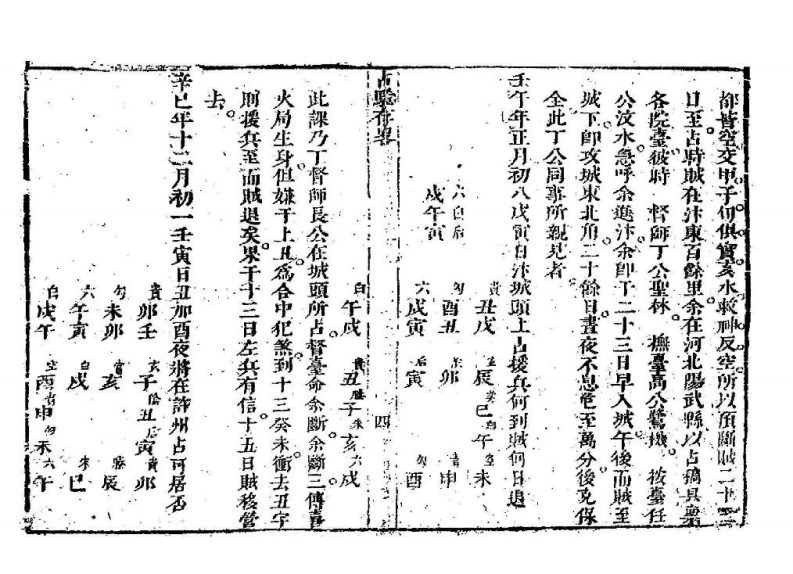 都皆空交甲子旬俱實亥水救神反空所以預斷賊二十三
日至占時賊在汴東百餘里余在河北陽武縣以占稿具稟
各院臺彼時 督師丁公聖林 撫臺高公鷺機 按臺任
公汶水急呼余進汴余即于二十三日早入城午後而賊至
城下即攻城東北角二十餘日晝夜不息危至萬分後克保
全此丁公同事所親見者
壬午年正月初八戊寅日汴城頭上占援兵何到賊何日退
六 白 后
戌 午 寅
六 勾 青
戌寅 酉丑 丑戌
后
寅 卯 辰 巳 午 未
勾
酉 申
占驗存畧
四
白 貴
午戌 丑 子 亥 戌
此課乃丁督師長公在城頭所占督臺命余斷余斷三傳喜
火局生身但嫌干上丑為合中犯煞到十三癸未衝去丑字
則援兵至而賊退矣果于十三日左兵有信十五日賊移營
去
辛巳年十二月初一壬寅日丑加酉夜將在許州占可居否
白 六 勾 貴
戌午 午寅 未卯 卯壬
子 丑 寅 卯
戌 亥 辰
巳
酉 申 未 午